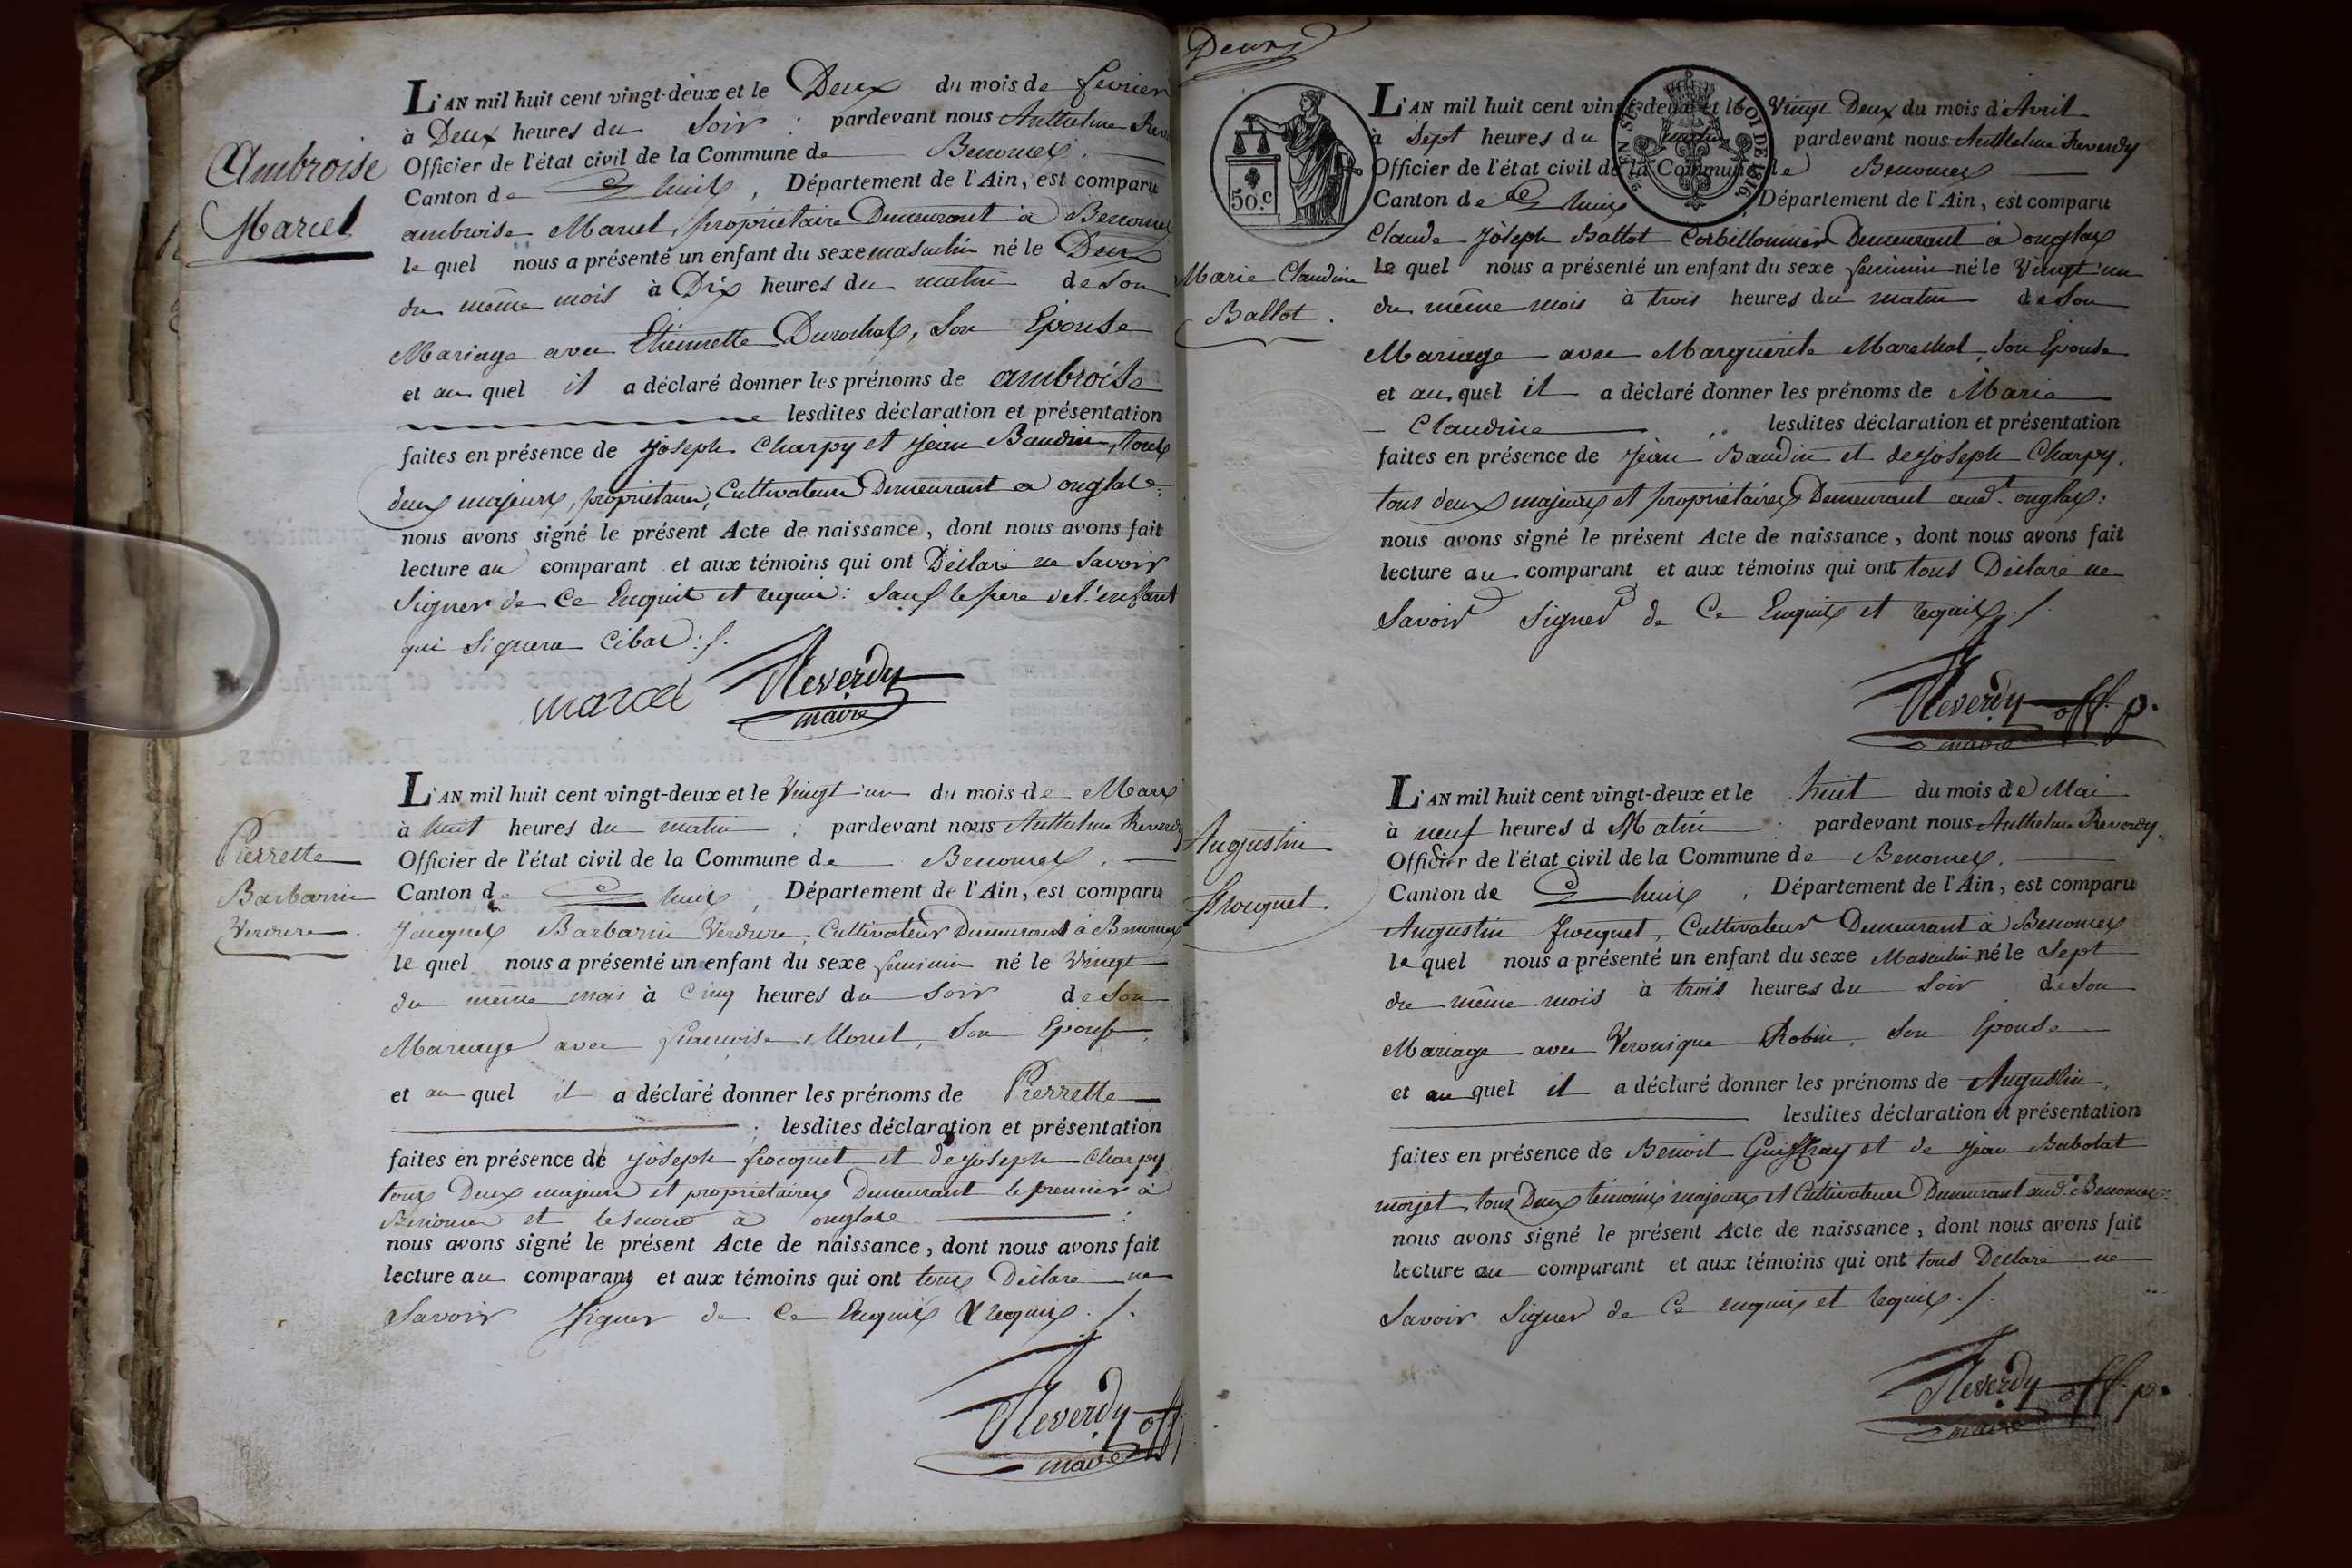 Ambroise
Marcel
L'AN mil huit cent vingt-deux et le Deux du mois de fevrier
à Deux heures du Soir : pardevant nous Anthelme Rev
Officier de l'état civil de la Commune de Benonces.
Canton de huis, Département de l'Ain, est comparu
ambroise Marcel, propriétaire Demeurant à Benonces
le quel nous a présenté un enfant du sexe masculin né le Deux
du même mois à Dix heures du matin de son
Mariage avec Etiennette Durochat, Son Epouse
et au quel il a déclaré donner les prénoms de ambroise
lesdites déclaration et présentation
faites en présence de joseph Charpy et jean Baudin, tous
deux majeurs, propriétaires, Cultivateurs Demeurant a onglas :
nous avons signé le présent Acte de naissance, dont nous avons fait
lecture au comparant et aux témoins qui ont Déclaré ne Savoir
Signer de Ce Enquis et requis : Sauf le père de l'enfant
qui Signera Cibas :/.
marcel Reverdy
maire
Pierrette
Barbarin
Verdure
L'AN mil huit cent vingt-deux et le Vingt un du mois de Mars
à huit heures du matin : pardevant nous Anthelme Reverdy
Officier de l'état civil de la Commune de Benonces.
Canton de huis, Département de l'Ain, est comparu
Jacques Barbarin Verdure, Cultivateur Demeurant à Benonces
le quel nous a présenté un enfant du sexe feminin né le Vingt
du meme mois à Cinq heures du Soir de Son
Mariage avec francoise Morel, Son Epouse,
et au quel il a déclaré donner les prénoms de Pierrette
; lesdites déclaration et présentation
faites en présence de joseph frocquet et de joseph Charpy
tous Deux majeurs et propriétaires Demeurant le premier à
Benonces et le Second à onglas :
nous avons signé le présent Acte de naissance, dont nous avons fait
lecture au comparant et aux témoins qui ont tous Déclaré ne
Savoir Signer de Ce Enquis & requis ./.
Reverdy off
maire
Deux
50.c
LOI DE 1816
Marie Claudine
Ballot.
L'AN mil huit cent vingt-deux et le Vingt Deux du mois d'Avril
à Sept heures du matin pardevant nous Anthelme Reverdy
Officier de l'état civil de la Commune de Benonces
Canton de huis Département de l'Ain, est comparu
Claude Joseph Ballot Corbillonnier Demeurant à onglas
le quel nous a présenté un enfant du sexe feminin né le Vingt un
du même mois à trois heures du matin de Son
Mariage avec Marguerite Marechal, Son Epouse
et au quel il a déclaré donner les prénoms de Marie
Claudine lesdites déclaration et présentation
faites en présence de jean Baudin et de joseph Charpy.
tous deux majeurs et propriétaires Demeurant aud.t onglas :
nous avons signé le présent Acte de naissance, dont nous avons fait
lecture au comparant et aux témoins qui ont tous Déclaré ne
Savoir Signer de Ce Enquis et requis ./.
Reverdy off. p.
maire
Augustin
Frocquet
L'AN mil huit cent vingt-deux et le huit du mois de Mai
à neuf heures d Matin : pardevant nous Anthelme Reverdy.
Officier de l'état civil de la Commune de Benonces.
Canton de huis, Département de l'Ain, est comparu
Augustin frocquet, Cultivateur Demeurant à Benonces
le quel nous a présenté un enfant du sexe Masculin né le Sept
du même mois à trois heures du Soir de Son
Mariage avec Veronique Robin, Son Epouse
et au quel il a déclaré donner les prénoms de Augustin.
lesdites déclaration et présentation
faites en présence de Benoit Guiffray et de jean Babolat
morjet, tous Deux témoins majeurs et Cultivateurs Demeurant aud.t Benonces :
nous avons signé le présent Acte de naissance, dont nous avons fait
lecture au comparant et aux témoins qui ont tous Déclaré ne
Savoir Signer de Ce enquis et requis ./.
Reverdy off. p.
maire